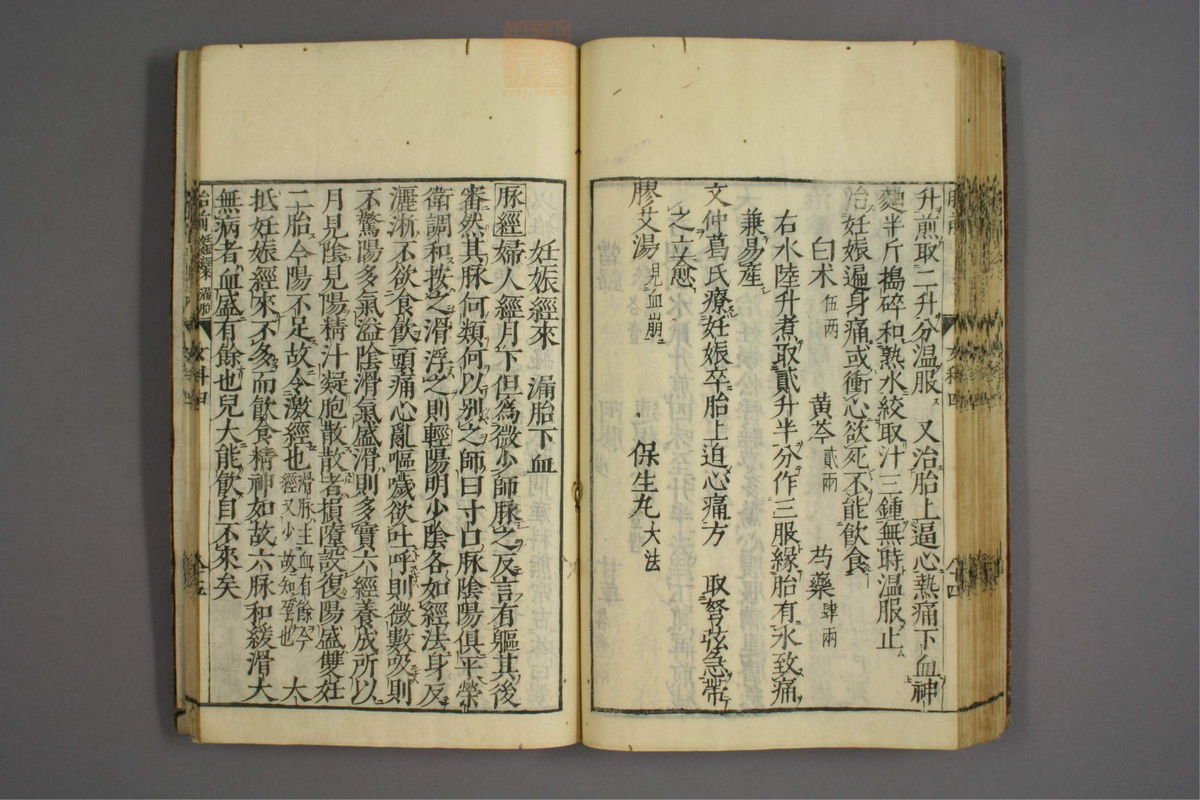 升煎取二升分温服 又治胎上逼心熱痛下血神
麯半斤搗碎和熟水絞取汁三鍾無時温服止
治妊娠遍身痛或衝心欲死不能飲食
白朮伍兩 黃芩貳兩 芍藥肆兩
右水陸升煮取貳升半分作三服縁胎有水致痛
兼易産
文仲葛氏療妊娠卒胎上迫心痛方 取弩弦急帶
之立愈
膠艾湯見血崩 保生丸大法
妊娠經來 漏胎下血
脉經婦人經月下但為微少師脉之反言有軀其後
審然其脉何類何以别之師曰寸口脉陰陽俱平榮
衛調和按之滑浮之則輕陽明少陰各如經法身反
灑淅不欲食飲頭痛心亂嘔噦欲吐呼則微數吸則
不驚陽多氣溢陰滑氣盛滑則多實六經養成所以
月見陰見陽精汁凝胞散散者損墮設復陽盛雙妊
二胎今陽不足故令激經也滑脉主血有餘今經又少故知孕也 大
抵妊娠經來不多而飲食精神如故六脉和緩滑大
無病者血盛有餘也兒大能飲自不來矣
女科四